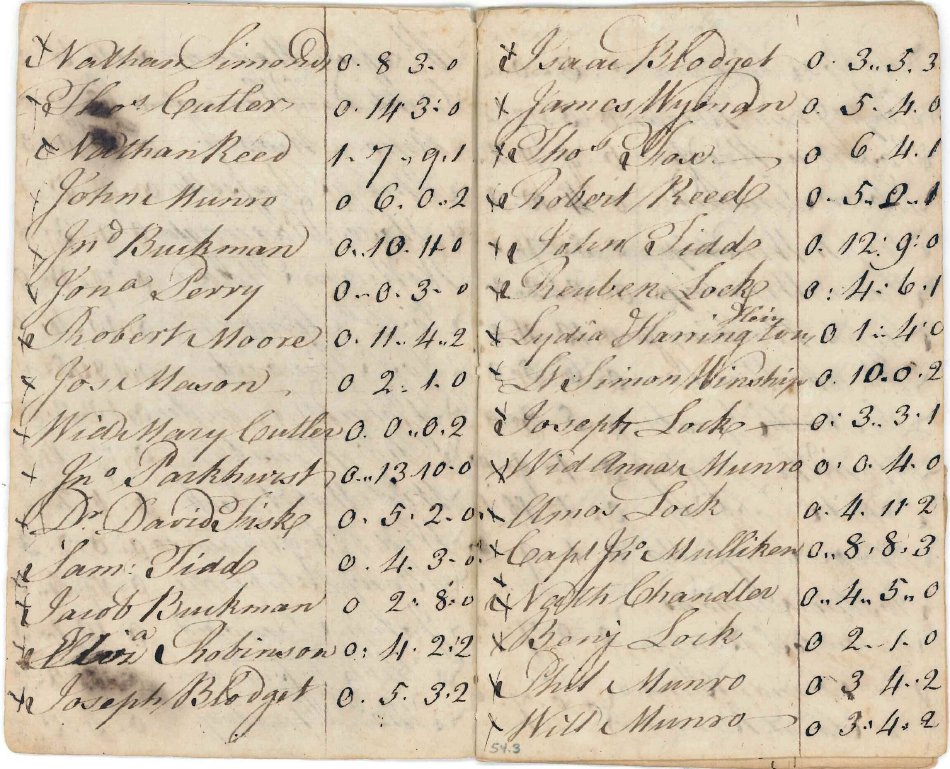 x Nathan Simonds 0. 8 3. 0
x Thos Cutler 0. 14 3. 0
x Nathan Reed 1. 7. 9. 1
x John Munro 0 6. 0. 2
x Jnd Buckman 0. 10. 11. 0
x Jona Perry 0. 0. 3. 0
x Robert Moore 0. 11. 4. 2
x Jos Mason 0 2. 1. 0
x Wid Mary Cutler 0. 0. 0. 2
x Jno Parkhurst 0. 13. 10. 0
x Dr David Fisk 0. 5. 2. 0
x Sam: Tidd 0. 4. 3. 0
x Jacob Buckman 0 2. 8. 0
x Robinson 0. 4. 2. 2
x Joseph Blodget 0. 5. 3. 2
x Isaac Blodget 0. 3. 5. 3
x James Wyman 0. 5. 4. 0
x Thos Fox 0 6. 4. 1
x Robert Reed 0. 5. 2. 1
x John Tidd 0. 12. 9. 0
x Reuben Lock 0. 4. 6. 1
x Lydia Harrington 0 1. 4. 0
x Lt Simon Winship 0. 10. 0. 2
x Joseph Lock 0. 3. 3. 1
x Wid Anna Munro 0. 0. 4. 0
x Amos Lock 0. 4. 11. 2
x Capt Jno Mulliken 0. 8. 8. 3
x Nath Chandler 0. 4. 5. 0
x Benj Lock 0 2. 1. 0
x Phil Munro 0 3 4. 2
Will Munro 0 3. 4. 2
54.3